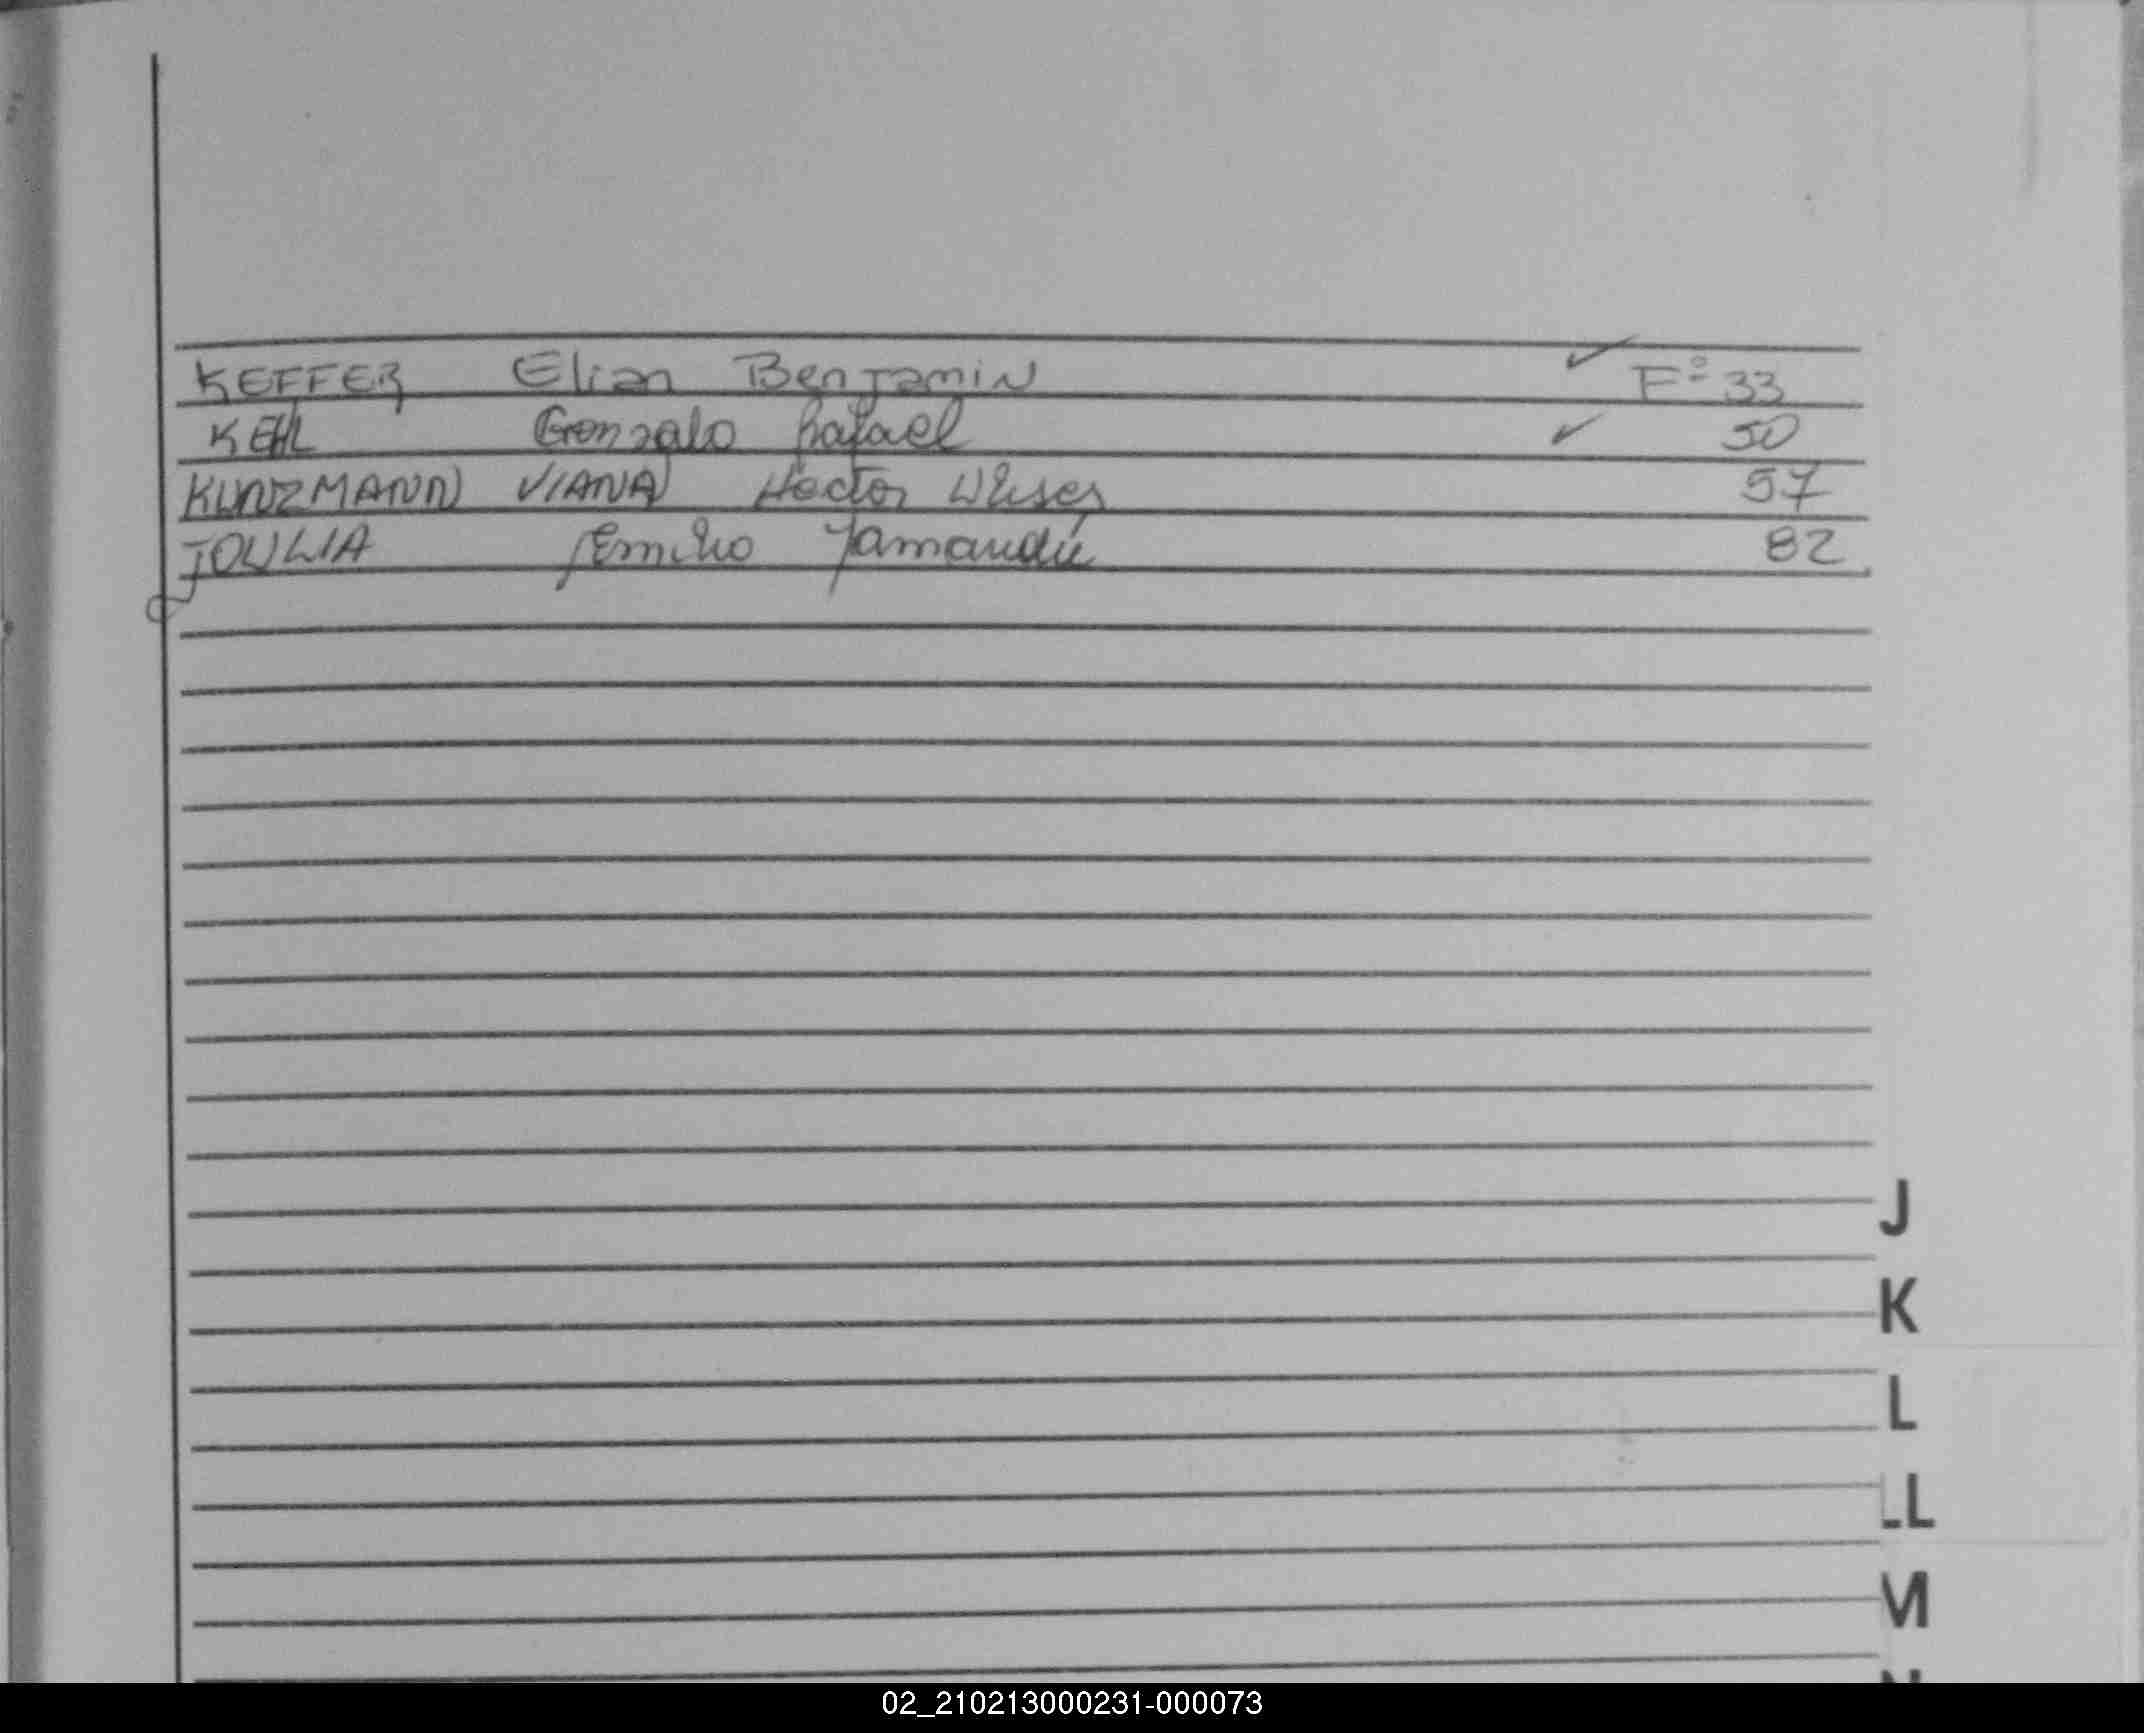 KEFFER Elian Benjamin ✓ Fº 33
KEHL Gonzalo Rafael ✓ 50
KUNZMANN VIANA Hector Ulises 57
JOULIA Emilio Yamandú 82
J
K
L
LL
M
02_210213000231-000073